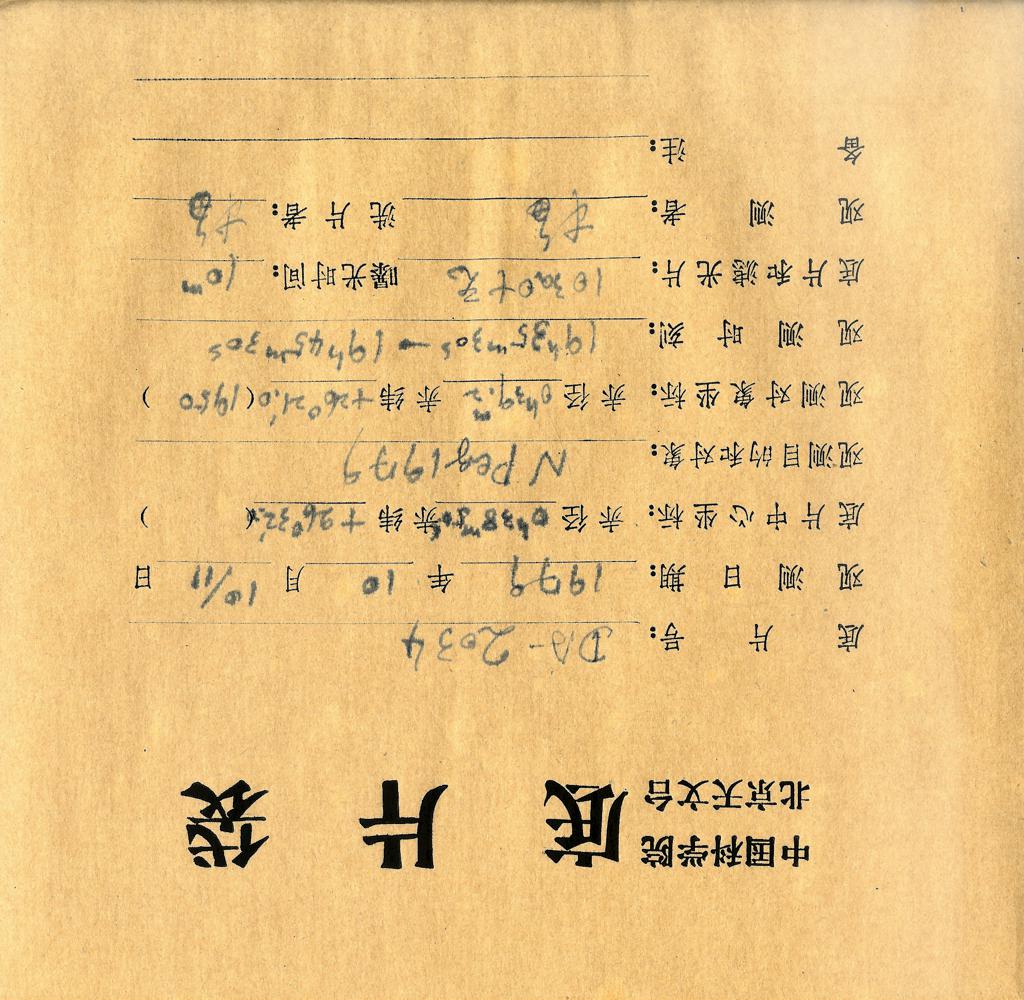 中国科学院
北京天文台 底片袋
底片号: DA-2034
观测日期: 1979年10月10/11日
底片中心坐标: 赤经0ʰ38ᵐ50ˢ赤纬+26°32′( )
观测目的和对象: N Peg 1979
观测对象坐标: 赤经0ʰ39ᵐ.2赤纬+26°21′.0(1950)
观测时刻: 19ʰ35ᵐ30ˢ—19ʰ45ᵐ30ˢ
底片和滤光片: 103aO+无 曝光时间: 10ᵐ
观测者: 洗片者:
备注: